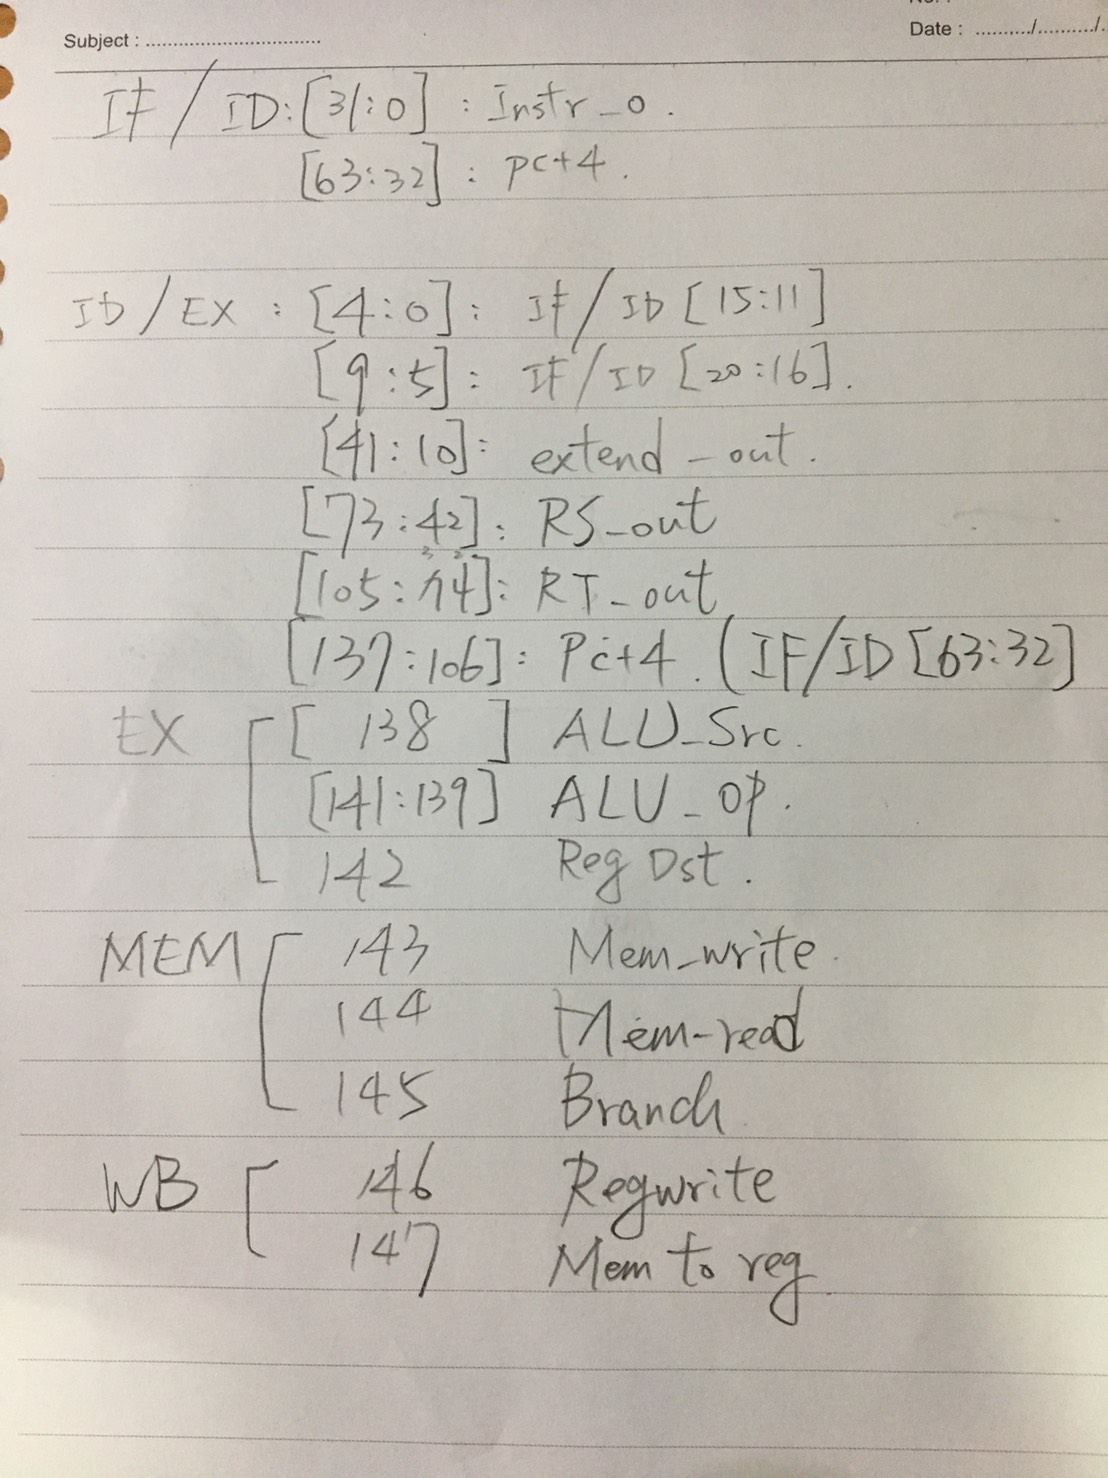 No. :
Subject : ................................
Date : ........../.........../.
IF / ID: [31:0] : Instr_0.
[63:32] : pc+4.
ID / EX : [4:0]: IF/ID [15:11]
[9:5]: IF/ID [20:16].
[41:10]: extend_out.
[73:42]: RS_out
[105:74]: RT_out
[137:106]: Pc+4. (IF/ID [63:32]
EX [ 138 ] ALU_Src.
[141:139] ALU_op.
142 Reg Dst.
MEM 143 Mem_write.
144 Mem-read
145 Branch
WB 146 Regwrite
147 Mem to reg